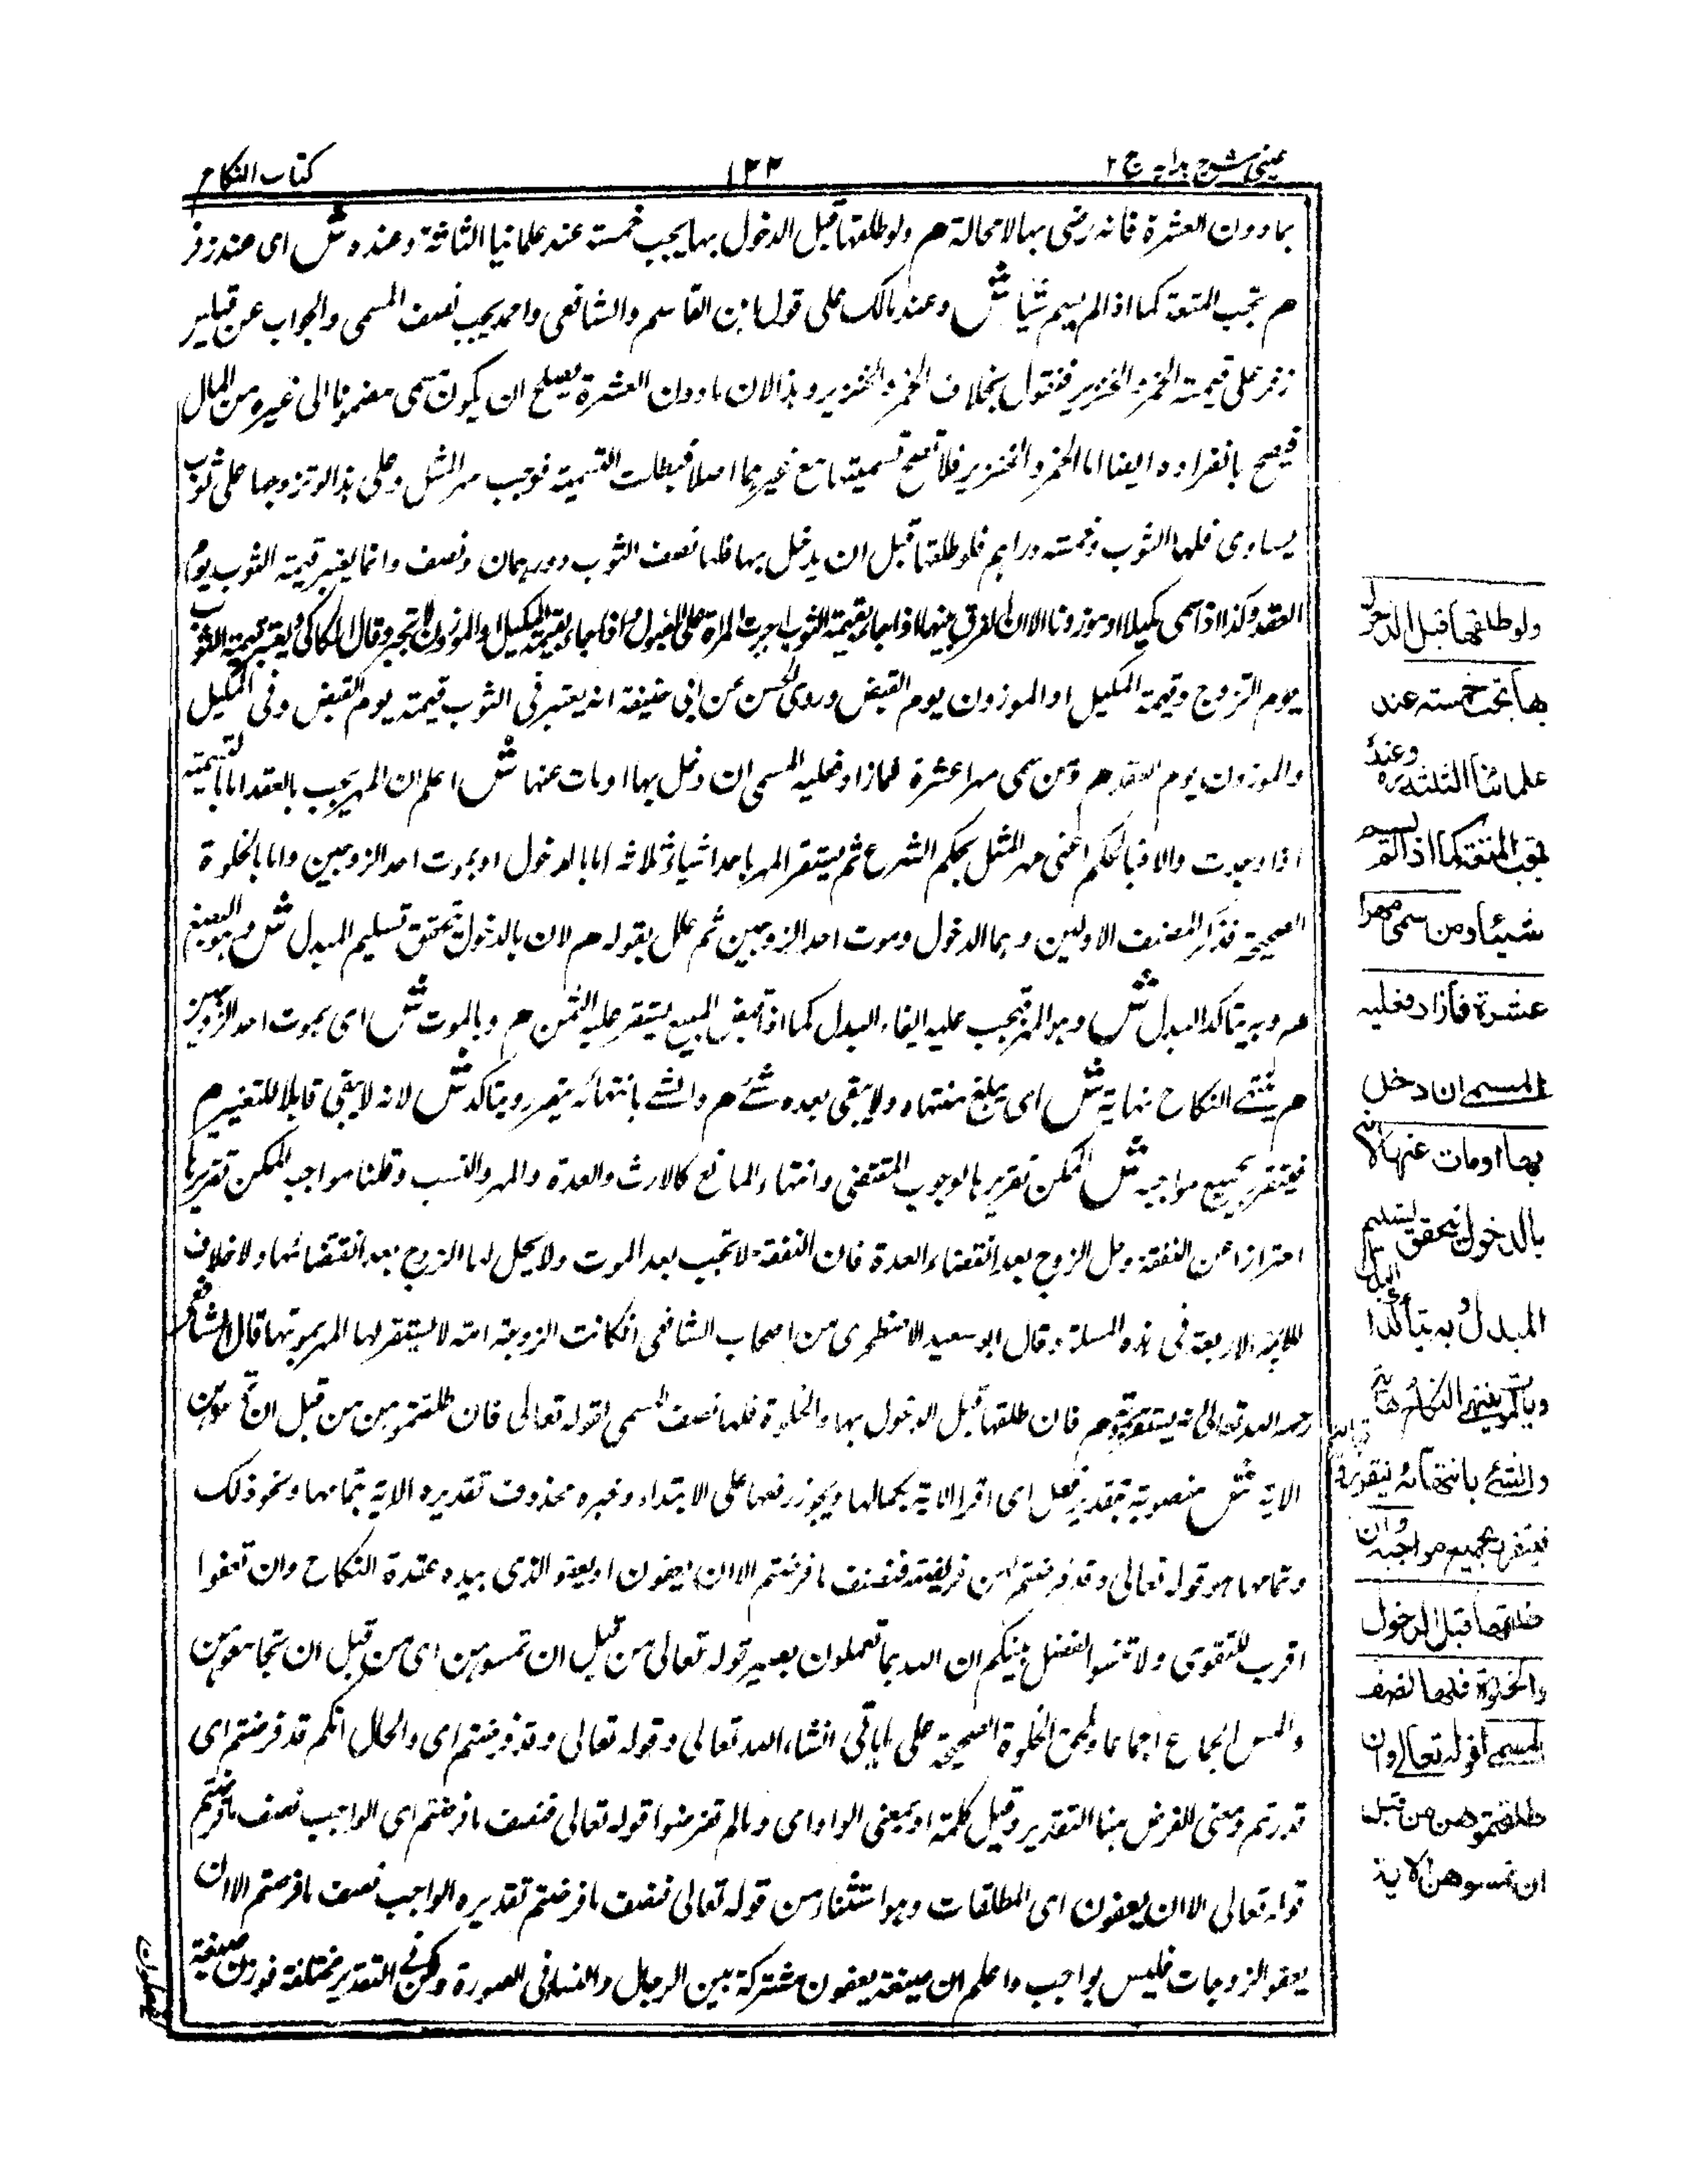 عينى شرح هدايه ج ٢
١٣٣
كتاب النكاح
بمادون العشرة فانه رضى بها لامحالة م ولو طلقها قبل الدخول بها يجب خمسة عند علمائنا الثلثة وعنده ش اى عند زفر
م تجب المتعة كما اذا لم يسم شيأ ش وعند مالك على قول ابن القاسم والشافعى واحمد يجب نصف المسمى والجواب عن قياس
زفر على قيمة الخمر والخنزير فنقول بخلاف الخمر والخنزير وهذا لان مادون العشرة يصلح ان يكون مسمى مضموما الى غيره من المال
فيصح بانفراده ايضا اما الخمر والخنزير فلا تصح تسميتها مع غيرهما اصلا فبطلت التسمية فوجب مهر المثل وعلى هذا لو تزوجها على ثوب
يساوى فلها الثوب وخمسة دراهم فلو طلقها قبل ان يدخل بها فلها نصف الثوب ودرهمان ونصف وانما يعتبر قيمة الثوب يوم
العقد وكذا اذا سمى مكيلا او موزونا الا ان الفرق بينهما اذا جاء بقيمة الثوب اجبرت المراة على القبول واذا جاء بقيمة المكيل والموزون لا تجبر وقال الكاكى ويعتبر قيمة الثوب
يوم التزوج وقيمة المكيل او الموزون يوم القبض وروى الحسن عن ابى حنيفة انه يعتبر فى الثوب قيمته يوم القبض وفى المكيل
والموزون يوم العقد م ومن سمى مهرا عشرة فمازاد فعليه المسمى ان دخل بها او مات عنها ش اعلم ان المهر يجب بالعقد اما بالتسمية
اذا وجدت والا فبالحكم اعنى مهر المثل بحكم الشرع ثم يستقر المهر باحد اشياء ثلاثة اما بالدخول او بموت احد الزوجين واما بالخلوة
الصحيحة فذكر المصنف الاولين وهما الدخول وموت احد الزوجين ثم علل بقوله م لان بالدخول يتحقق تسليم المبدل ش وهو البضع
م وبه يتاكد البدل ش وهو المهر فيجب عليه ايفاء البدل كما اذا قبض المبيع يستقر عليه الثمن م وبالموت ش اى بموت احد الزوجين
م ينتهى النكاح نهاية ش اى يبلغ منتهاه ولا يبقى بعده شئ م والشئ بانتهائه يتقرر ويتاكد ش لانه لا يبقى قابلا للتغيير م
فيتقرر بجميع مواجبه ش الممكن تقريرها لوجوب المقتضى وانتفاء المانع كالارث والعدة والمهر والنسب وقلنا مواجب الممكن تقريرها
احترازا عن النفقة وحل الزوج بعد انقضاء العدة فان النفقة لا تجب بعد الموت ولا يحل لها الزوج بعد انقضائها ولا خلاف
للائمة الاربعة فى هذه المسلة وقال ابو سعيد الاصطخرى من اصحاب الشافعى ان كانت الزوجة امة لا يستقر لها المهر بموتها قال الشافعى
رحمه الله تعالى م فان طلقها قبل الدخول بها والخلوة فلها نصف المسمى لقوله تعالى فان طلقتموهن من قبل ان تمسوهن
الاية ش منصوبة بتقدير فعل اى اقرا الاية بكمالها ويجوز رفعها على الابتداء وخبره محذوف تقديره الاية بتمامها ونحو ذلك
وتمامها هو قوله تعالى وقد فرضتم لهن فريضة فنصف ما فرضتم الا ان يعفون او يعفو الذى بيده عقدة النكاح وان تعفوا
اقرب للتقوى ولا تنسوا الفضل بينكم ان الله بما تعملون بصير قوله تعالى من قبل ان تمسوهن اى من قبل ان تجامعوهن
والمس الجماع اجماعا ولحق الخلوة الصحيحة على ماياتى انشاء الله تعالى وقوله تعالى وقد فرضتم اى والحال انكم قد فرضتم اى
قدرتم ومعنى الفرض هنا التقدير وقيل كلمة او بمعنى الواو اى ومالم تفرضوا قوله تعالى فنصف ما فرضتم اى الواجب نصف ما فرضتم
قوله تعالى الا ان يعفون اى المطلقات وهو استثناء من قوله تعالى فنصف ما فرضتم تقديره الواجب نصف ما فرضتم الا ان
يعفو الزوجات فليس بواجب واعلم ان صيغة يعفون مشتركة بين الرجال والنساء فى الصورة ولكن فى التقدير مختلفة فوزن صيغة
ولو طلقها قبل الدخول
بها تجب خمسة عند
علمائنا الثلثة وعنده
تجب المتعة كما اذا لم يسم
شيئا ومن سمى مهرا
عشرة فمازاد فعليه
المسمى ان دخل
بها او مات عنها لانه
بالدخول يتحقق تسليم
المبدل وبه يتأكد البدل
وبالموت ينتهى النكاح نهايته
والشئ بانتهائه يتقرر
فيتقرر بجميع مواجبه وان
طلقها قبل الدخول
والخلوة فلها نصف
المسمى لقوله تعالى وان
طلقتموهن من قبل
ان تمسوهن الاية